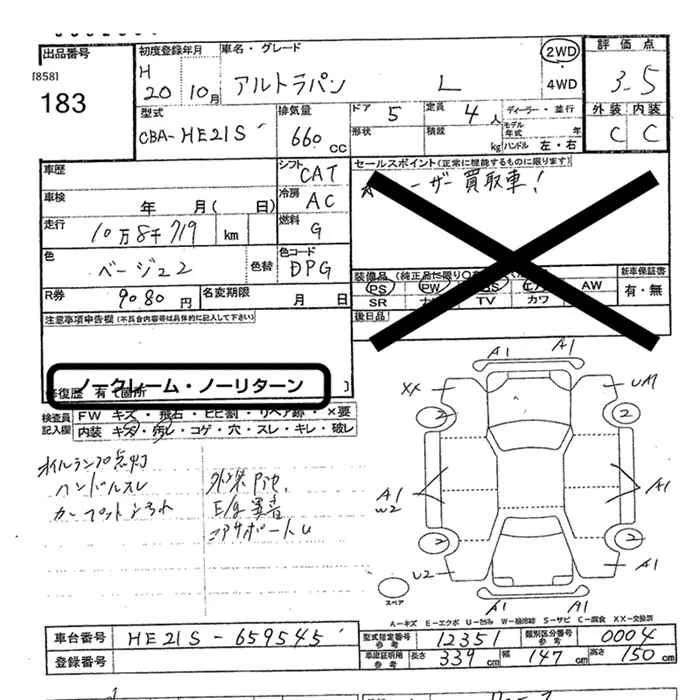 出品番号
[858]
183
初度登録年月
H
20年10月
車名・グレード
アルトラパン L
2WD
・
4WD
評価点
3.5
外装 内装
C C
型式
CBA-HE21S
排気量
660 CC
ドア 5
定員 4人
形状
積載 kg
ディーラー・並行
モデル年式 年
ハンドル 左・右
車歴
シフト CAT
車検 年 月( 日)
冷房 AC
走行 10万8千719 km
燃料 G
色 ベージュ2
色替
色コード DPG
R券 9080円
名変期限 月 日
セールスポイント(正常に機能するものに限ります)
ユーザー買取車!
装備品(純正品に限り
新車保証書
有・無
PS PW
AW
SR
TV カワ
後日品
注意事項申告欄(不具合内容等は具体的に記入して下さい)
ノークレーム・ノーリターン
修復歴 有 箇所
検査員記入欄
FW キズ・飛石・ヒビ割・リペア跡・×要
内装 キズ・汚レ・コゲ・穴・スレ・キレ・破レ
オイルランプ点灯
ハンドルスレ
E/g異音
A1 A1
XX UM
2 2
A1 A1
W2
2 2
U2 A1
A1 A1
スペア
A-キズ E-エクボ U-凹み W-補修跡 S-サビ C-腐食 XX-交換済
車台番号 HE21S-659545
登録番号
型式指定番号 参考 12351
類別区分番号 参考 0004
車庫証明用 参考 長さ 339 cm 幅 147 cm 高さ 150 cm